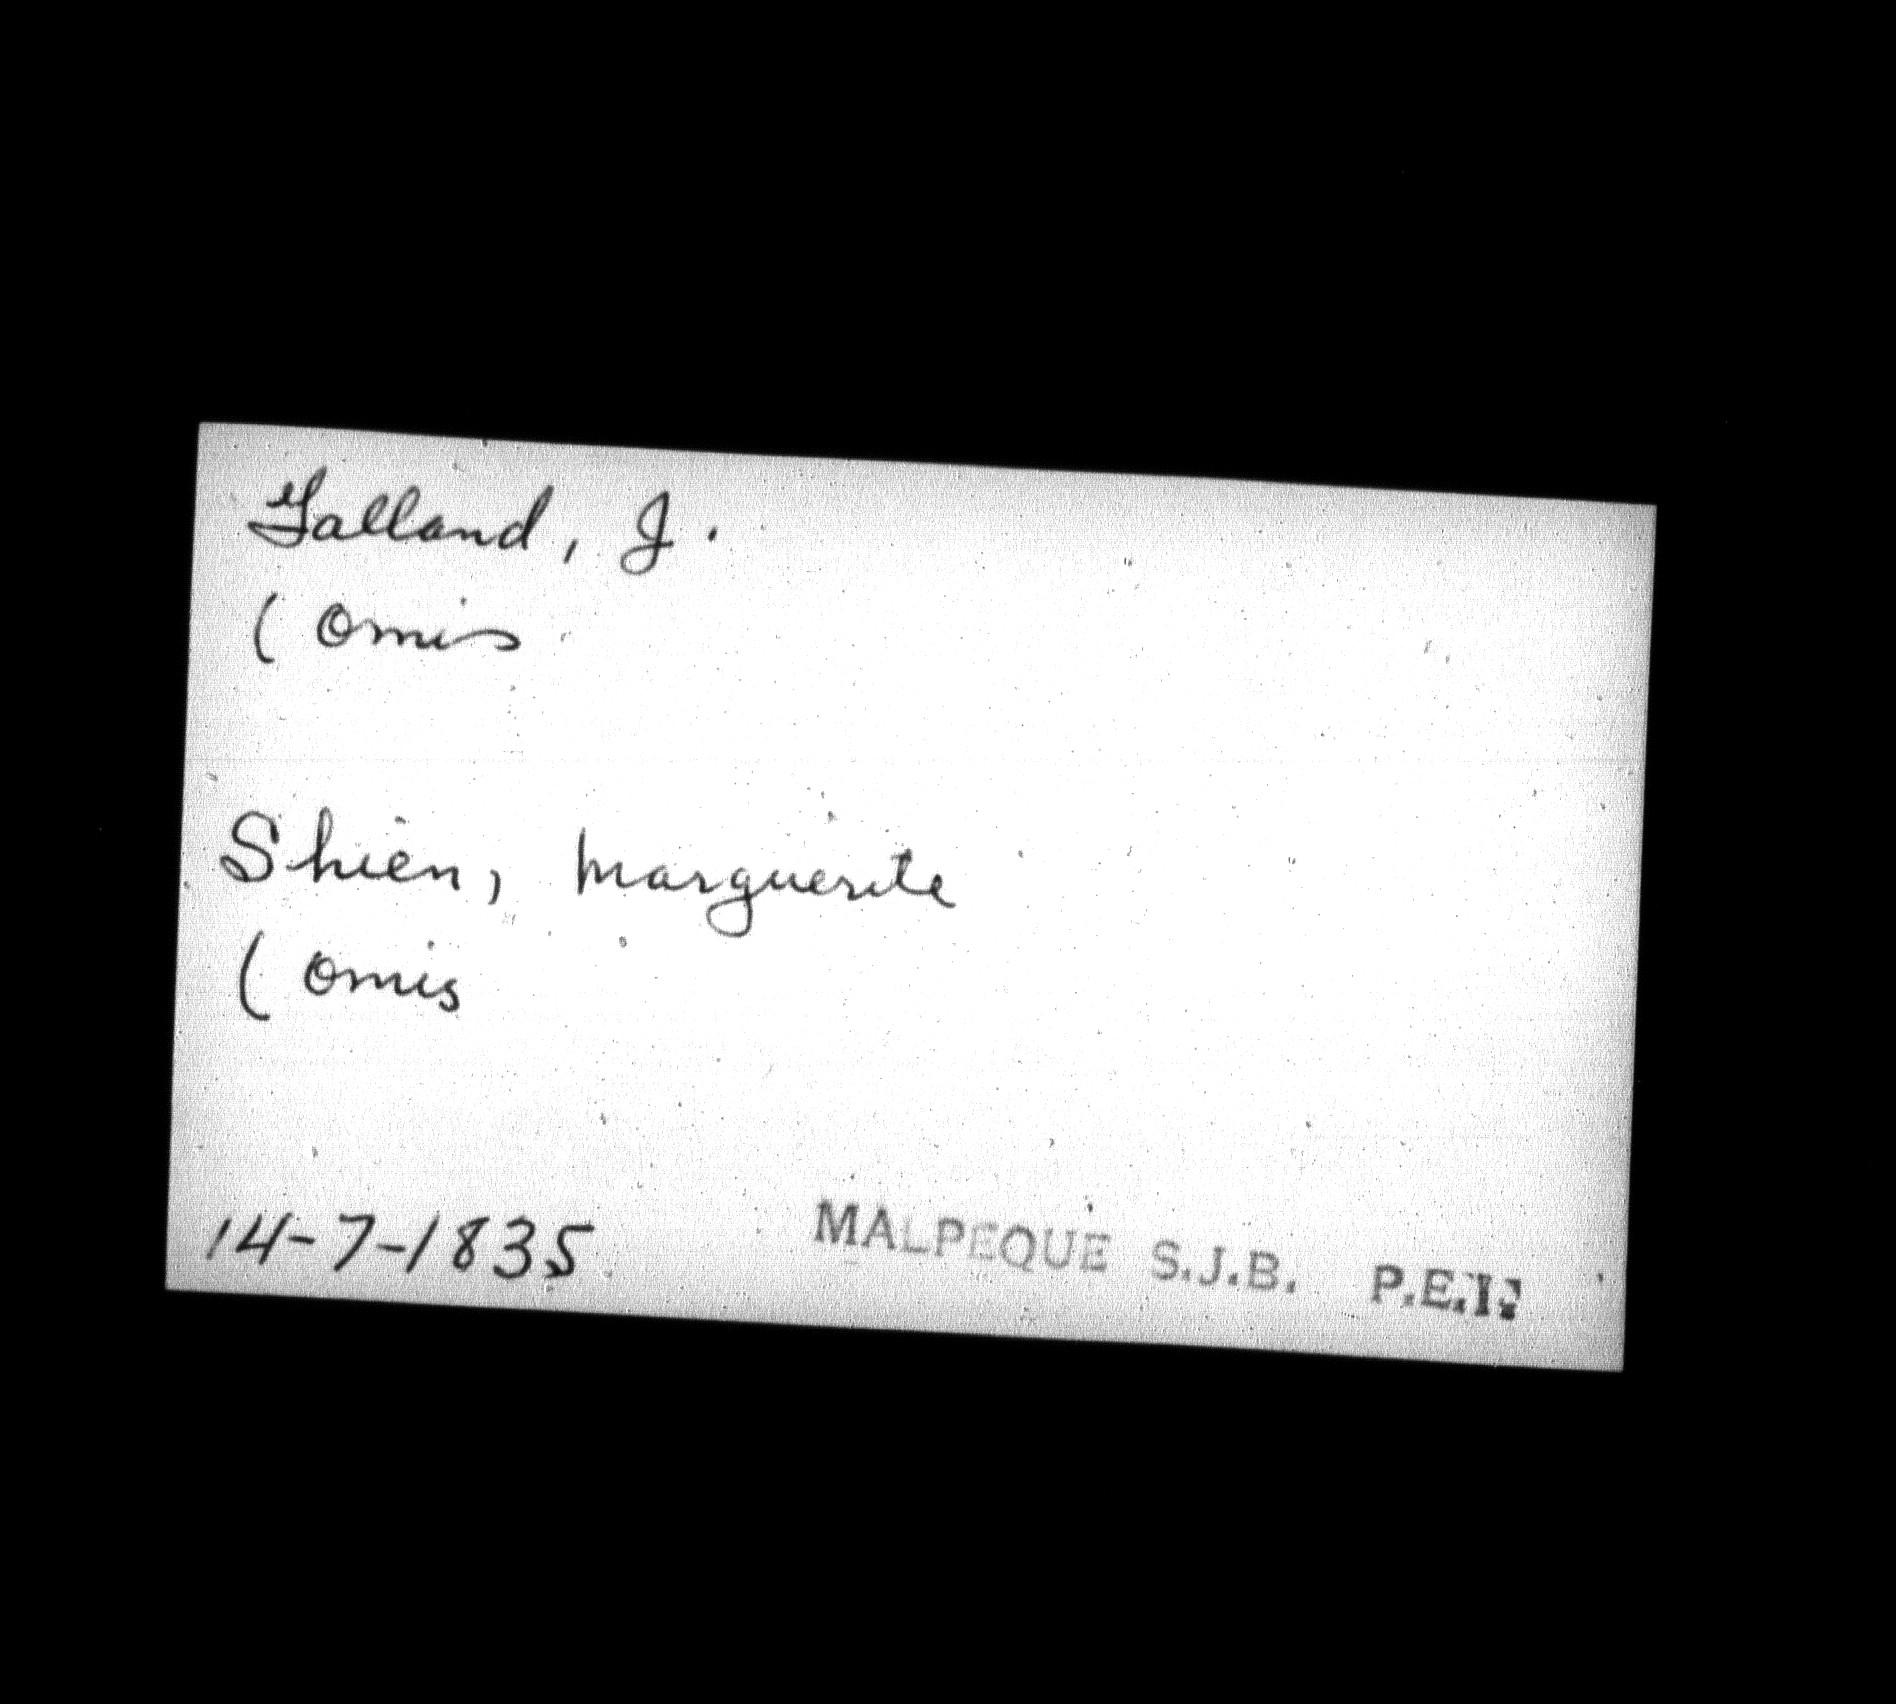 Galland, J.
( omis
Shien, Marguerite
( omis
14-7-1835 MALPEQUE S.J.B. P.E.I.